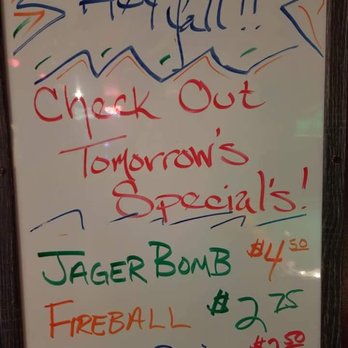 Hey Y'all!!
Check Out
Tomorrow's
Special's!
JAGER BOMB $4.50
FIREBALL $2.75
$2.50